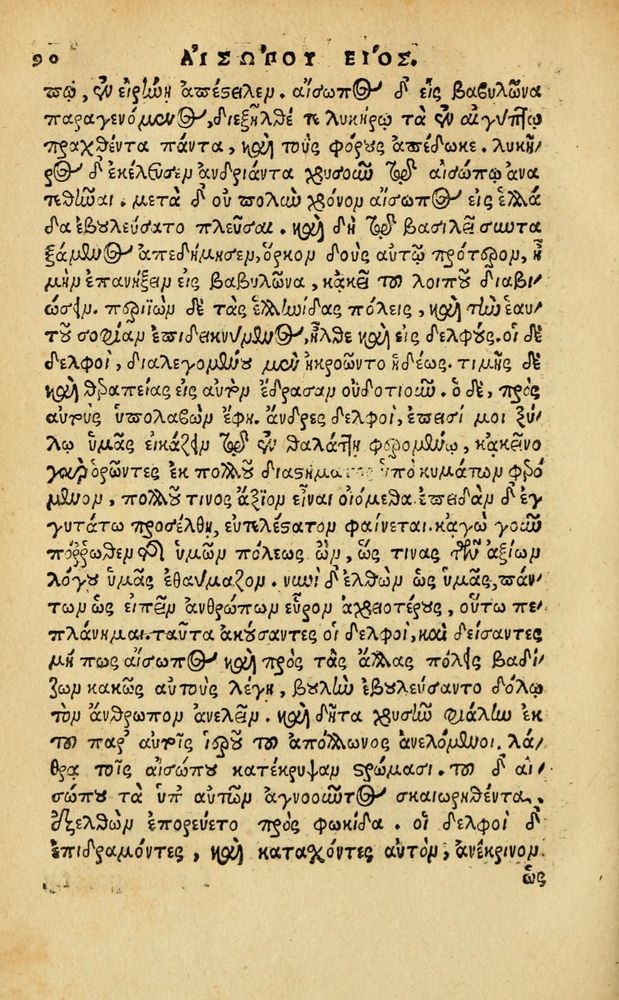 90 ΑΙΣΩΠΟΥ ΒΙΟΣ.
πῳ, ἐν εἰρήνῃ ἀπέστειλεν. αἴσωπος δ' εἰς βαβυλῶνα
παραγενόμενος, διεξῆλθέ τε λυκήρῳ τὰ ἐν αἰγύπτῳ
πραχθέντα πάντα, καὶ τοὺς φόρους ἀπέδωκε. λυκῆ-
ρος δ' ἐκέλευσεν ἀνδριάντα χρυσοῦν τῷ αἰσώπῳ ἀνα
τεθῆναι. μετὰ δ' οὐ πολὺν χρόνον αἴσωπος εἰς ἑλλά
δα ἐβουλεύσατο πλεῦσαι. καὶ δὴ τῷ βασιλεῖ συντα
ξάμενος ἀπεδήμησεν, ὅρκον δοὺς αὐτῷ πρότερον, ἦ
μὴν ἐπανήξειν εἰς βαβυλῶνα, κἀκεῖ τὸ λοιπὸν διαβι-
ώσειν. περιϊὼν δὲ τὰς ἑλληνίδας πόλεις, καὶ τὴν ἑαυ-
τοῦ σοφίαν ἐπιδεικνύμενος, ἦλθε καὶ εἰς δελφούς. οἱ δὲ
δελφοὶ, διαλεγομένου μὲν ἠκροῶντο ἡδέως. τιμῆς δὲ
καὶ θεραπείας εἰς αὐτὸν ἔδρασαν οὐδοτιοῦν. ὁ δὲ, πρὸς
αὐτοὺς ὑπολαβὼν ἔφη. ἄνδρες δελφοὶ, ἔπεισί μοι ξύ-
λῳ ὑμᾶς εἰκάζειν τῷ ἐν θαλάττῃ φερομένῳ, κἀκεῖνο
γὰρ ὁρῶντες ἐκ πολλοῦ διαστήματος ὑπὸ κυμάτων φερό
μενον, πολλοῦ τινος ἄξιον εἶναι οἰόμεθα. ἐπειδὰν δ' ἐγ
γυτάτω προσέλθῃ, εὐτελέστατον φαίνεται. κἀγὼ γοῦν
πόρρωθεν τῆς ὑμῶν πόλεως ὢν, ὥς τινας τῶν ἀξίων
λόγου ὑμᾶς ἐθαύμαζον. νυνὶ δ' ἐλθὼν ὡς ὑμᾶς, πάν-
των ὡς εἰπεῖν ἀνθρώπων εὗρον ἀχρειοτέρους, οὕτω πε-
πλάνημαι. ταῦτα ἀκούσαντες οἱ δελφοὶ, καὶ δείσαντες
μή πως αἴσωπος καὶ πρὸς τὰς ἄλλας πόλεις βαδί-
ζων κακῶς αὐτοὺς λέγῃ, βουλὴν ἐβουλεύσαντο δόλῳ
τὸν ἄνθρωπον ἀνελεῖν. καὶ δῆτα χρυσῆν φιάλην ἐκ
τοῦ παρ' αὐτοῖς ἱεροῦ τοῦ ἀπόλλωνος ἀνελόμενοι. λά-
θρα τοῖς αἰσώπου κατέκρυψαν στρώμασι. τοῦ δ' αἰ-
σώπου τὰ ὑπ' αὐτῶν ἀγνοοῦντος σκαιωρηθέντα.
ἐξελθὼν ἐπορεύετο πρὸς φωκίδα. οἱ δελφοὶ δ'
ἐπιδραμόντες, καὶ καταχόντες αὐτὸν, ἀνέκρινον
ὡς